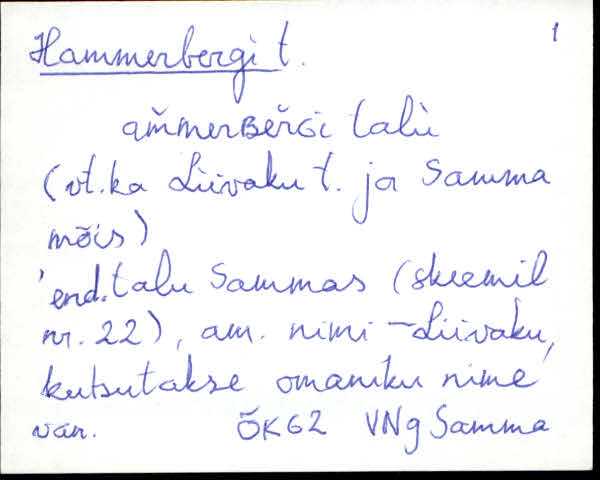 Hammerbergi t. 1
am̆merʙĕrɢi talù
(vt. ka Liivaku t. ja Samma
mõis)
'end. talu Sammas (skeemil
nr. 22), am. nimi - Liivaku,
kutsutakse omaniku nime'
van. ÕK62 VNg Samma